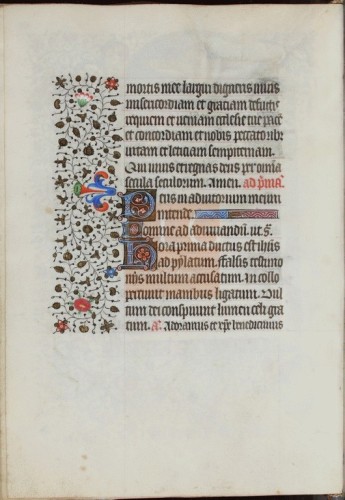 mortis mee largiri digneris viuis
misericordiam et graciam defuctis
requiem et veniam ecclesie tue pace
et concordiam et nobis peccatoribz
vitam et leticiam sempiternam.
Qui viuis et regnas deus per omia
secula seculorum. Amen. ad p̃ma.
Deus in adiutorium meum
intende
Domine ad adiuuandũ. ut s.
Hora prima ductus est ihus
ad pylatum. falsis testimo
niis multum accusatum. In collo
percuciunt manibus ligatum. Vul
tum dei conspuunt lumen celi gra
tum. a. Adoramus te xpe benedicimus